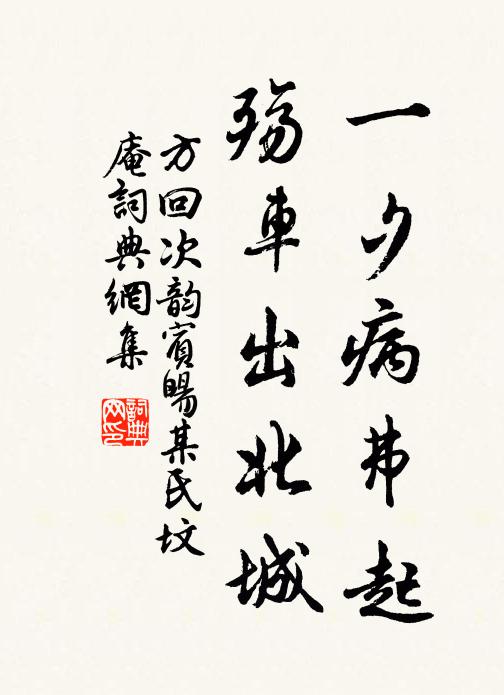 一夕病弗起
殤車出北城
方回次韵賓暘某氏墳
庵詞典網集
詞典網印